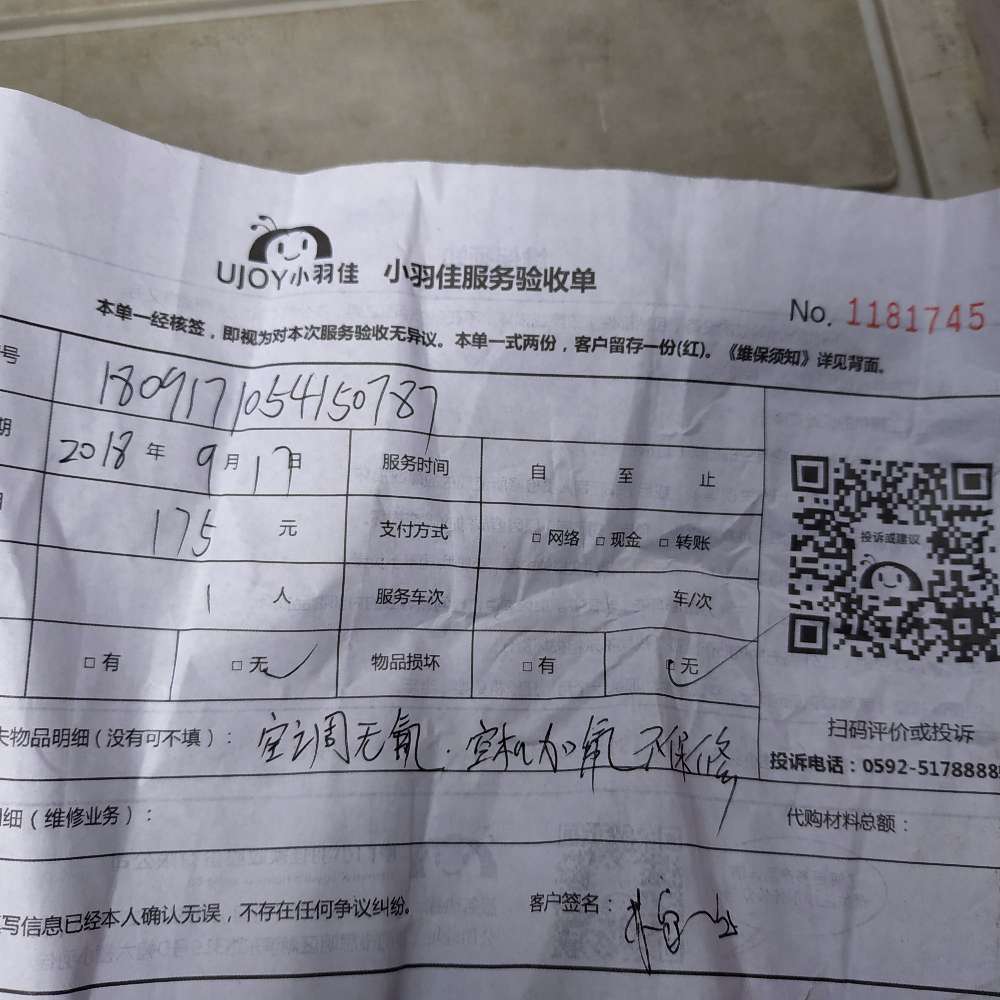 UJOY小羽佳 小羽佳服务验收单
No. 1181745
本单一经核签，即视为对本次服务验收无异议。本单一式两份，客户留存一份(红)。《维保须知》详见背面。
号 180917105415078
2018 年 9 月 17 日 服务时间 自 至 止
175 元 支付方式 □ 网络 □ 现金 □ 转账
1 人 服务车次 车/次
□ 有 □ 无 物品损坏 □ 有 □ 无
投诉或建议
扫码评价或投诉
投诉电话：0592-5178888
物品明细（没有可不填）： 空调无氟．空机加氟不保修
细（维修业务）： 代购材料总额：
写信息已经本人确认无误，不存在任何争议纠纷。 客户签名：